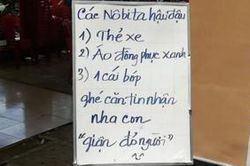 Các Nôbita hậu đậu
1) Thẻ xe
2) Áo đồng phục xanh
3) 1 cái bóp
ghé căn tin nhận
nha con
"giận đỏ người"